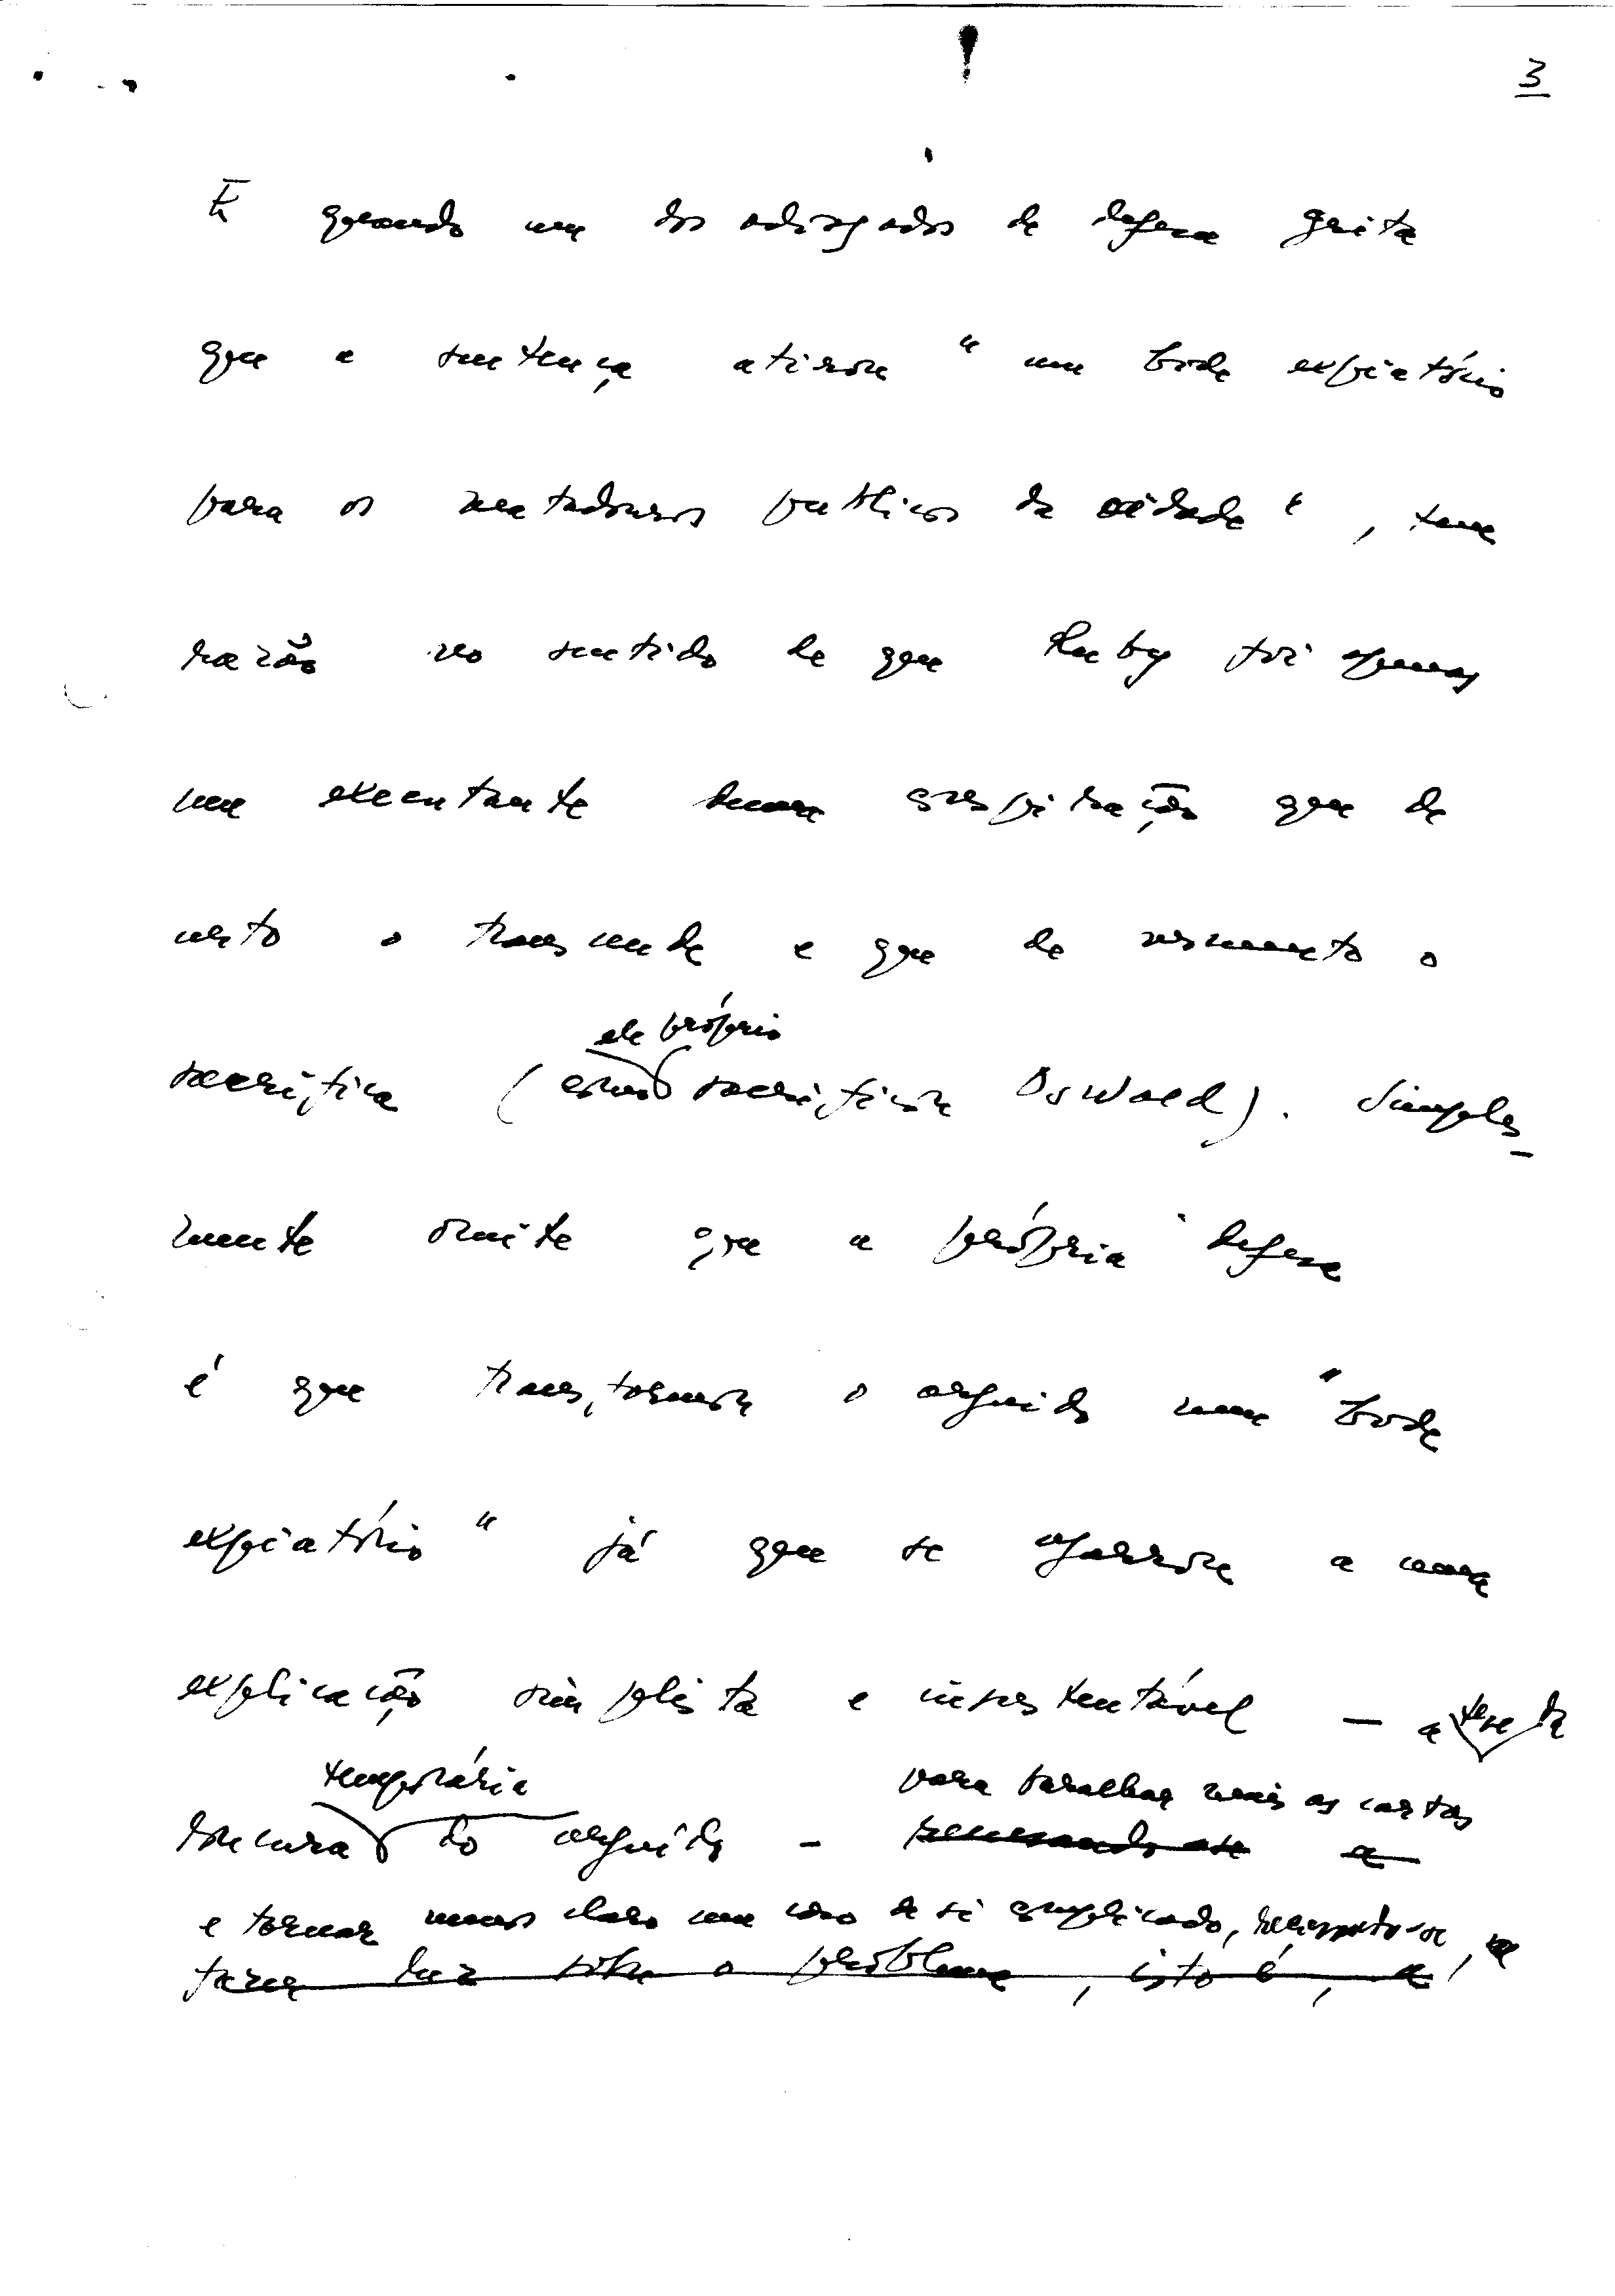 3
E quando um dos advogados de defesa grita
que a sentença atirou "um bode expiatório
para os matadouros publicos da cidade", tem
razão no sentido de que Ruby foi apenas
um executante duma conspiração que de
certo o transcende e que de momento o
ele próprio
sacrifica (como sacrificou Oswald). Simples-
mente omite que a própria defesa
é que transformou o arguido num "bode
expiatório" já que se agarrou a uma
explicação simplista e insustentável — a tese da
temporária para baralhar mais as cartas
loucura do arguido — recusando-se a
e tornar menos claro um caso de si complicado, recusando-se, a
fazer luz sobre o problema, isto é, a